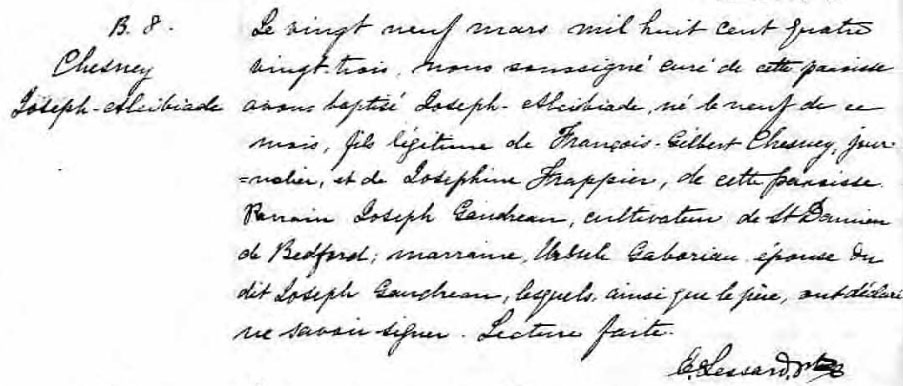 B. 8.
Chesney
Joseph-Alcibiade
Le vingt neuf mars mil huit cent quatre
vingt-trois, nous soussigné curé de cette paroisse
avons baptisé Joseph-Alcibiade, né le neuf de ce
mois, fils légitime de François-Gilbert Chesney, jour-
=nalier, et de Josephine Frappier, de cette paroisse.
Parrain Joseph Gaudreau, cultivateur de St Damien
de Bedford; marraine, Ursule Gaboriau épouse du
dit Joseph Gaudreau, lesquels, ainsi que le père, ont déclaré
ne savoir signer. Lecture faite.
E. Lessard, ptre